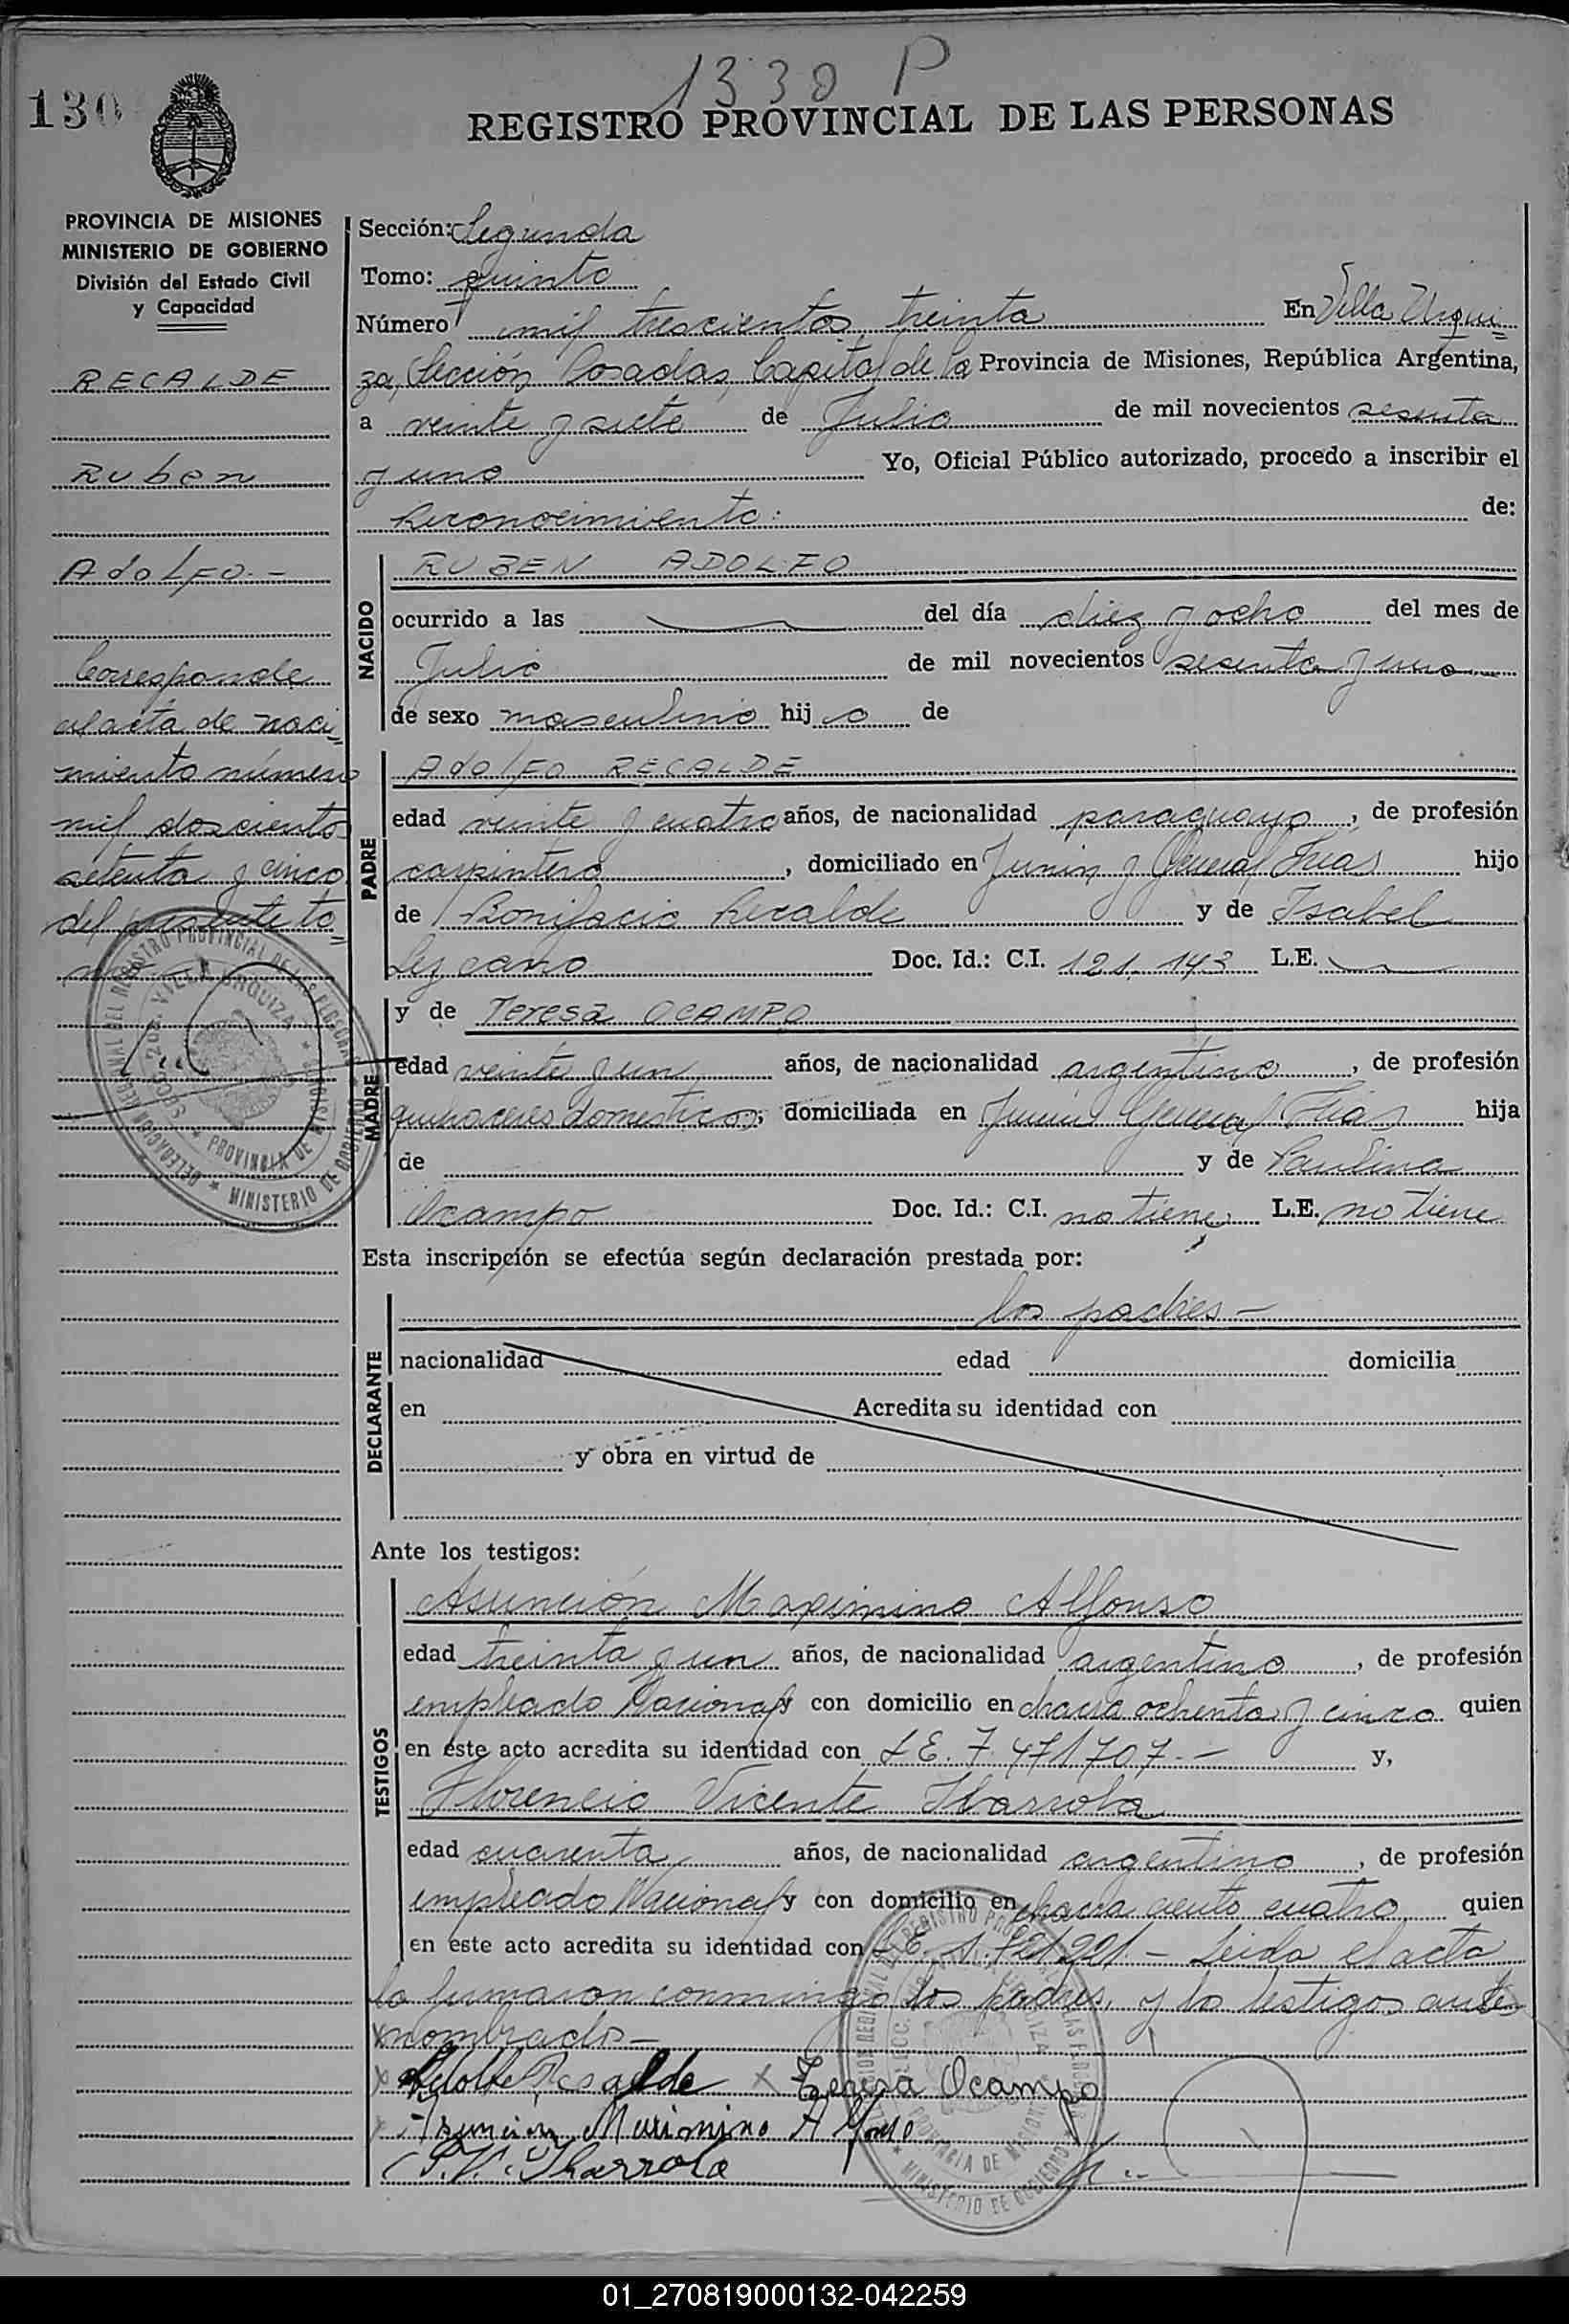 1330 P
130
REGISTRO PROVINCIAL DE LAS PERSONAS
PROVINCIA DE MISIONES
MINISTERIO DE GOBIERNO
División del Estado Civil
y Capacidad
RECALDE
Ruben
Adolfo.-
Corresponde
al acta de naci=
miento número
mil doscientos
setenta y cinco
del presente to=
mo.-
Sección: Segunda
Tomo: quinto
Número mil trescientos treinta En Villa Urqui=
za, Sección Posadas, Capital de la Provincia de Misiones, República Argentina,
a veinte y siete de Julio de mil novecientos sesenta
y uno Yo, Oficial Público autorizado, procedo a inscribir el
Reconocimiento: de:
NACIDO
RUBEN ADOLFO
ocurrido a las del día diez y ocho del mes de
Julio de mil novecientos sesenta y uno
de sexo masculino hijo de
PADRE
Adolfo RECALDE
edad veinte y cuatro años, de nacionalidad paraguayo, de profesión
carpintero, domiciliado en Junin y General Frias hijo
de Bonifacio Recalde y de Isabel
Lezcano Doc. Id.: C.I. 121.143 L.E.
MADRE
y de Teresa OCAMPO
edad veinte y un años, de nacionalidad argentina, de profesión
quehaceres domesticos, domiciliada en Junin General Frias hija
de y de Paulina
Ocampo Doc. Id.: C.I. no tiene L.E. no tiene
Esta inscripción se efectúa según declaración prestada por:
DECLARANTE
los padres -
nacionalidad edad domicilia
en Acredita su identidad con
y obra en virtud de
Ante los testigos:
TESTIGOS
Asunción Maximino Alfonso
edad treinta y un años, de nacionalidad argentino, de profesión
empleado Nacional y con domicilio en chacra ochenta y cinco quien
en este acto acredita su identidad con L.E. 7.471707.- y,
Florencio Vicente Ibarrola
edad cuarenta años, de nacionalidad argentino, de profesión
empleado Nacional y con domicilio en chacra ciento cuatro quien
en este acto acredita su identidad con L.E. - Leida el acta
la firmaron conmingo los padres, y lo testigos ante
nombrados -
x Adolfo Recalde x Teresa Ocampo
x Asunción Maximino Alfonso
F.V. Ibarrola
DELEGACION REGIONAL DEL REGISTRO PROVINCIAL DE LAS PERSONAS
SECC. 2da. VILLA URQUIZA
PROVINCIA DE MISIONES
MINISTERIO DE GOBIERNO
01_270819000132-042259